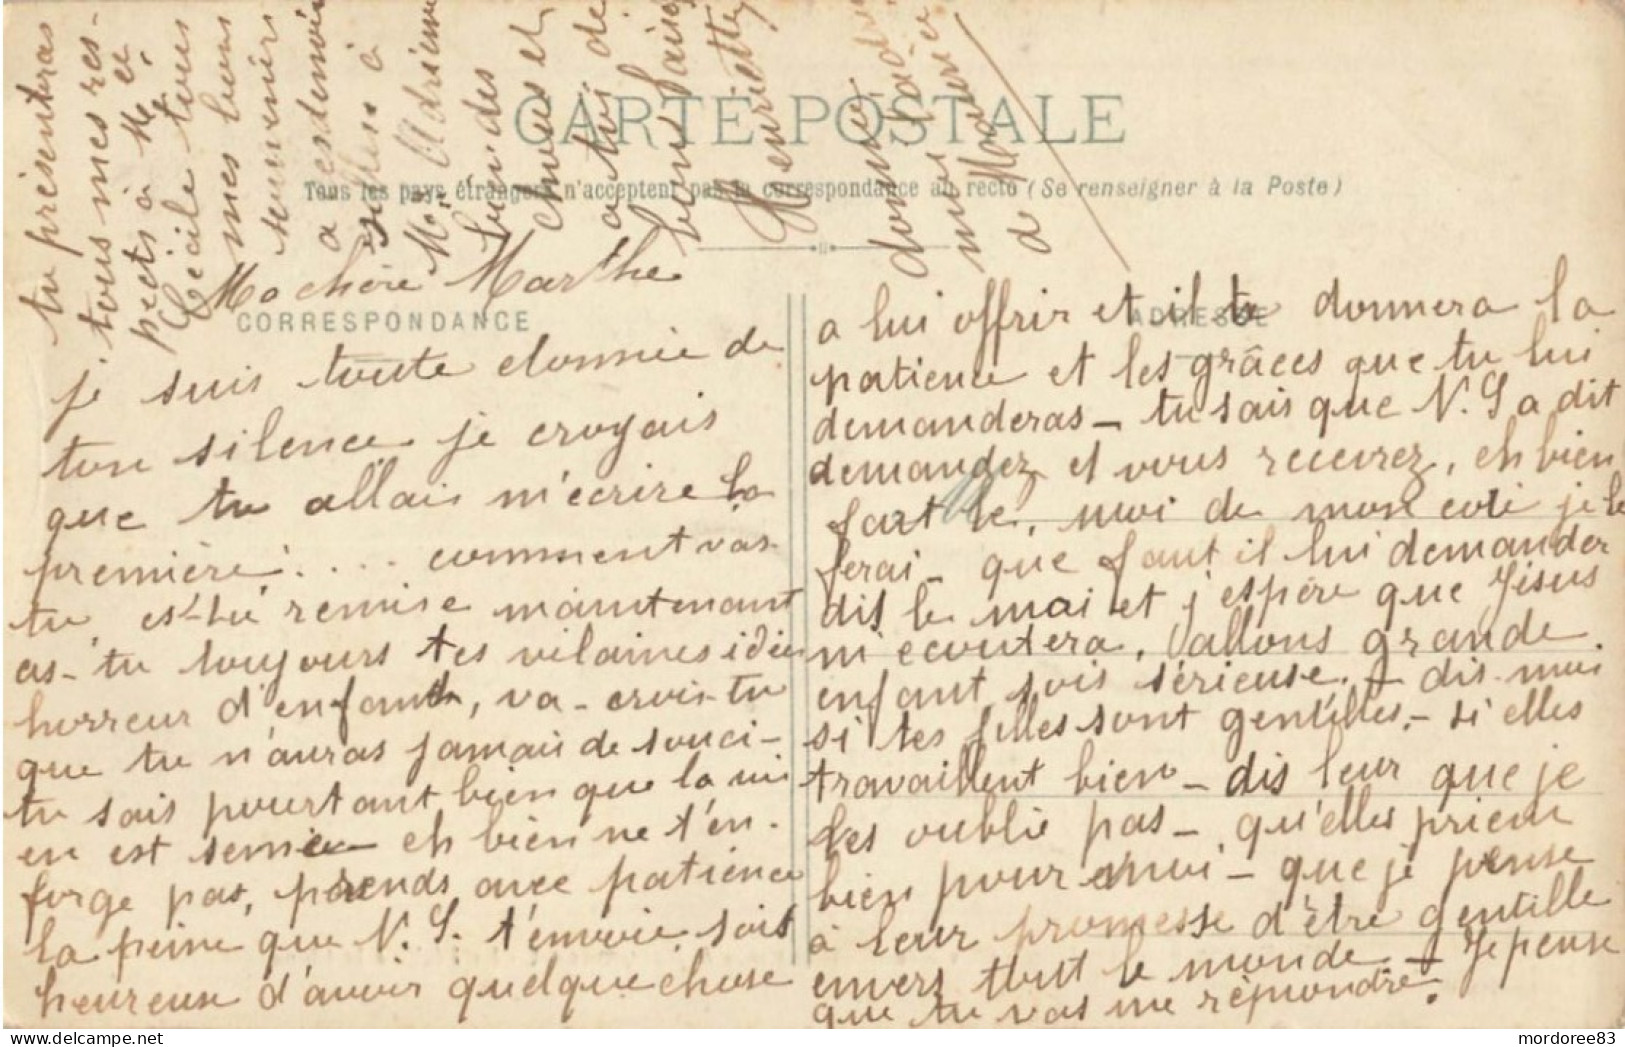 CARTE POSTALE
Tous les pays étrangers n'acceptent pas la correspondance au recto (Se renseigner à la Poste)
CORRESPONDANCE
ADRESSE
Ma chère Marthe
je suis toute etonnée de
ton silence je croyais
que tu allais m'écrire la
première.... comment vas-
tu, es-tu remise maintenant
as-tu toujours tes vilaines idées
horreur d'enfant, va-crois-tu
que tu n'auras jamais de souci-
tu sais pourtant bien que la vie
en est semée- eh bien ne t'en
forge pas, prends avec patience
la peine que N.S. t'envoie, sois
heureuse d'avoir quelque chose
a lui offrir et il te donnera la
patience et les grâces que tu lui
demanderas- tu sais que N.S a dit
demandez et vous recevrez, eh bien
fait le, moi de mon coté je le
ferai- que faut il lui demander
dis le moi et j'espère que Jésus
m'ecoutera. Vallons grande
enfant sois sérieuse.- dis-moi
si tes filles sont gentilles.- si elles
travaillent bien- dis leur que je
les oublie pas- qu'elles prient
bien pour moi- que je pense
à leur promesse d'être gentille
envers tout le monde- Je pense
que tu vas me répondre.
tu présenteras
tous mes res-
pects à Me
Cécile tous
mes bons
souvenirs
a ces demois
Adrienne
bien des
choses et
a toi de
bons baisers
Henriette
de Maurice
mordoree83